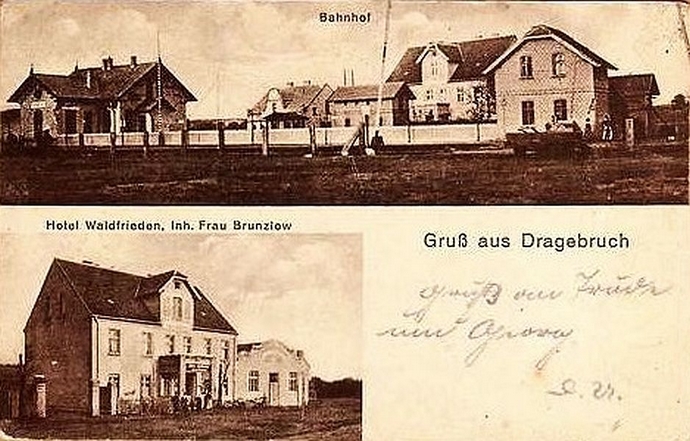 Bahnhof
Hotel Waldfrieden, Inh. Frau Brunzlow
Gruß aus Dragebruch
Gruß an Trude
und Georg